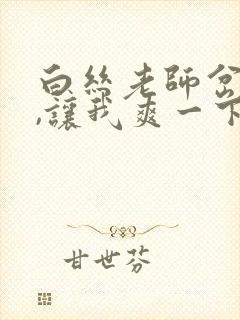 白丝老師岔
,讓我爽一下
甘世芬